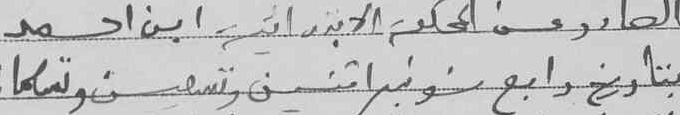 الصادر عن المحكمة الابتدائية ابن احمد
بتاريخ رابع نونبر اثنين وتسعين وتسعمائة